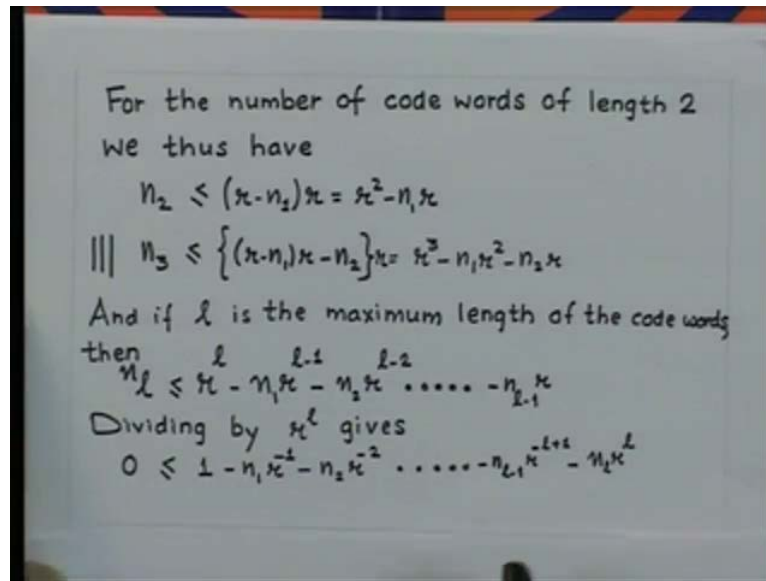 For the number of code words of length 2
We thus have
n₂ ≤ (r-n₁)r = r²-n₁r
||| n₃ ≤ {(r-n₁)r-n₂}r= r³-n₁r²-n₂r
And if l is the maximum length of the code words
then
n_l ≤ r^l - n₁r^(l-1) - n₂r^(l-2) ..... -n_(l-1)r
Dividing by r^l gives
0 ≤ 1 - n₁r⁻¹ - n₂r⁻² ...... -n_(l-1)r^(-l+1) - n_l r^l